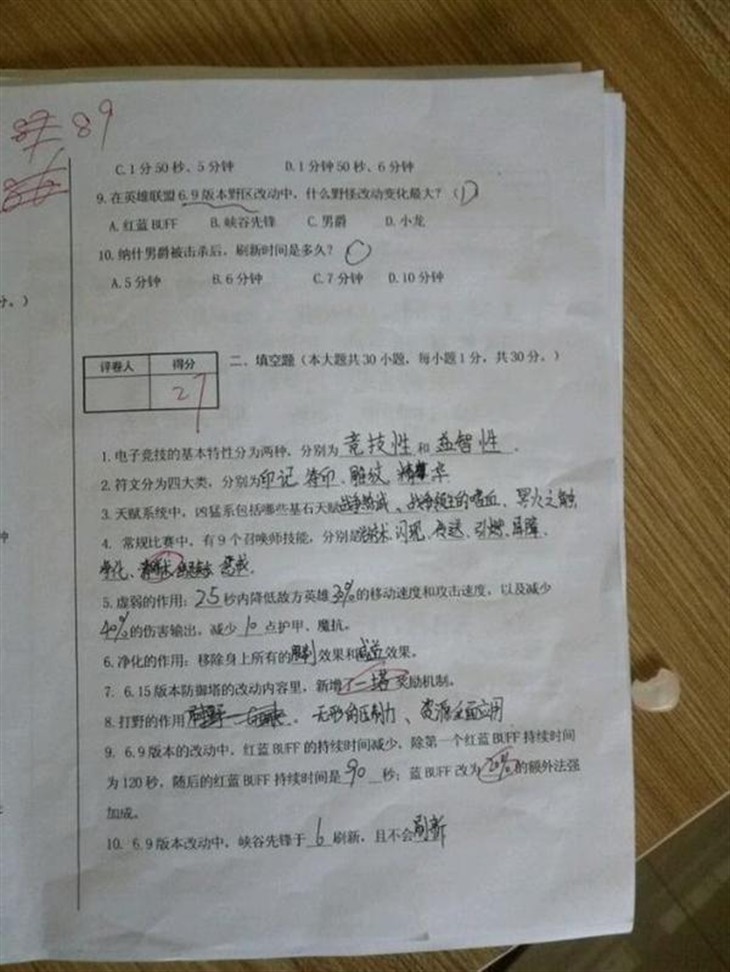 89
C.1分50秒、5分钟 D.1分50秒、6分钟
9.在英雄联盟6.9版本野区改动中，什么野怪改动变化最大？（D）
A.红蓝BUFF B.峡谷先锋 C.男爵 D.小龙
10.纳什男爵被击杀后，刷新时间是多久？
A.5分钟 B.6分钟 C.7分钟 D.10分钟
分。）
评卷人 得分
27
二、填空题（本大题共30小题，每小题1分，共30分。）
1.电子竞技的基本特性分为两种，分别为 竞技性 和 益智性 。
2.符文分为四大类，分别为印记 符印、雕纹 精华
3.天赋系统中，凶猛系包括哪些基石天赋战争热诚、战争领主的嗜血、冥火之触
4. 常规比赛中，有9个召唤师技能，分别是治疗术、闪现、传送、引燃、屏障、
净化、惩戒.
5.虚弱的作用：2.5秒内降低敌方英雄30%的移动速度和攻击速度，以及减少
40%的伤害输出，减少10点护甲、魔抗。
6.净化的作用：移除身上所有的限制效果和减益效果。
7. 6.15版本防御塔的改动内容里，新增了一塔奖励机制。
8.打野的作用 。无形的压制力、资源全面应用
9. 6.9版本的改动中，红蓝BUFF的持续时间减少，除第一个红蓝BUFF持续时间
为120秒，随后的红蓝BUFF持续时间是90秒；蓝BUFF改为20%的额外法强
加成。
10. 6.9版本改动中，峡谷先锋于6刷新，且不会刷新